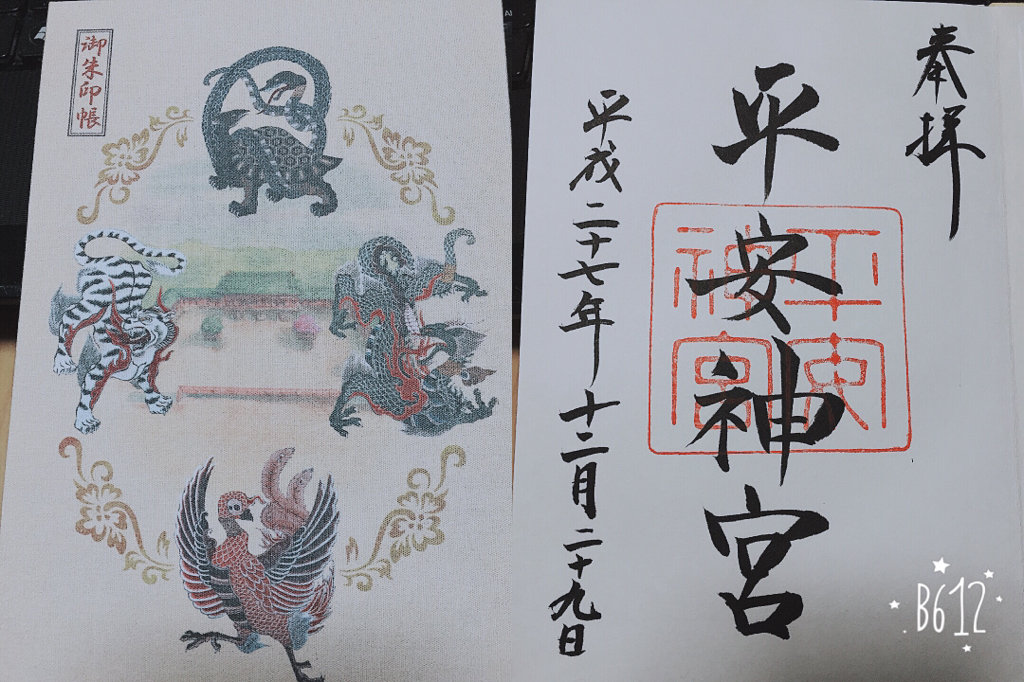 御朱印帳
奉拝
平安神宮
平安
神宮
平成二十七年 十二月二十九日
B612